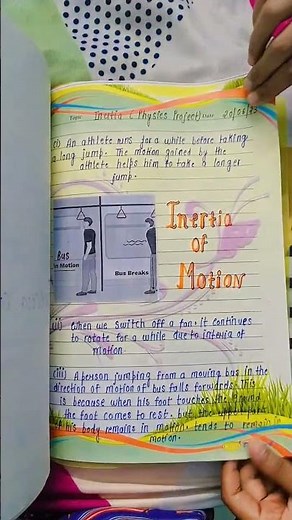 Topic Inertia (Physics Project) Date 20/06/23
(i) An athlete runs for a while before taking
a long jump. The motion gained by the
athlete helps him to take a longer
jump.
Bus
in Motion
Bus Breaks
Inertia
of
Motion
(ii) When we switch off a fan, it continues
to rotate for a while due to interia of
motion
(iii) A person jumping from a moving bus in the
direction of motion of bus falls forwards. This
is because when his foot touches the ground
the foot comes to rest. but the upper part
of his body remains in motion. tends to remain in
motion.